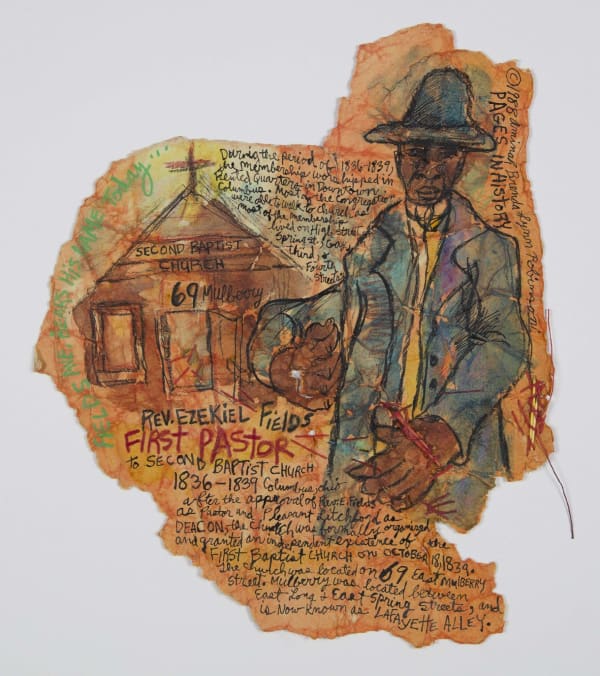 ©1988 Aminah Brenda Lynn Robinson
PAGES IN HISTORY
During the period of 1836-1839,
the membership worshipped in
Rented Quarters in Downtown
Columbus. Most of the Congregation
were able to walk to church as
most of the membership
lived on High Street
Spring St., Gay,
third, &
Fourth
Streets
SECOND BAPTIST
CHURCH
69 Mulberry
REV. EZEKIEL FIELDS
FIRST PASTOR
to SECOND BAPTIST CHURCH
1836-1839 Columbus, Ohio
after the approval of Rev. E. Fields
as Pastor and Pleasant Litchford as
DEACON, the church was formally organized
and granted an independent existence of the
FIRST BAPTIST CHURCH ON OCTOBER 18, 1839.
The church was located on 69 East MULBERRY
Street. Mulberry was located between
East Long & East Spring Streets, and
is Now Known as LAFAYETTE ALLEY.